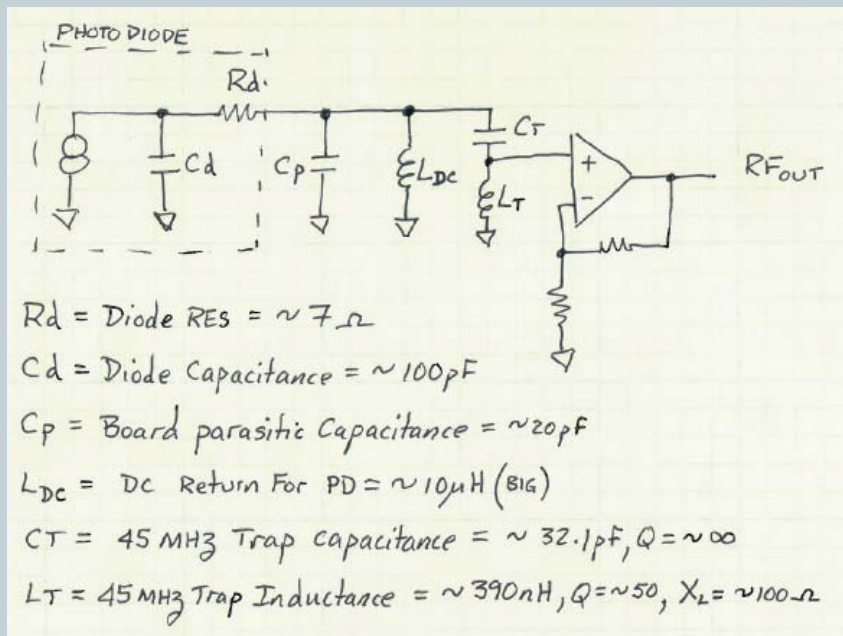 PHOTO DIODE
Rd.
Cd
Cp
LDC
CT
LT
+
-
RFOUT
Rd = Diode RES = ~ 7 Ω
Cd = Diode Capacitance = ~100pF
Cp = Board parasitic Capacitance = ~20pF
LDC = DC Return For PD = ~10μH (BIG)
CT = 45 MHz Trap Capacitance = ~ 32.1pF, Q = ~∞
LT = 45MHz Trap Inductance = ~390nH, Q=~50, XL= ~100Ω